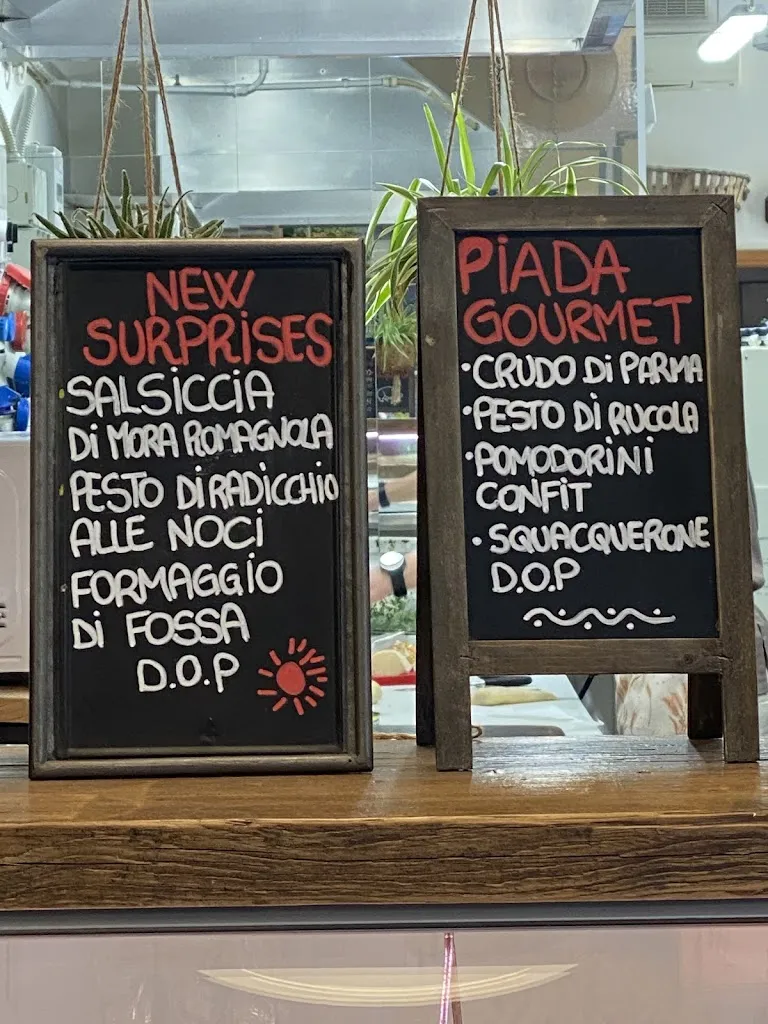 NEW
SURPRISES
SALSICCIA
Di MORA ROMAGNOLA
PESTO Di RADICCHIO
ALLE NOCi
FORMAGGIO
Di FOSSA
D.O.P
PiADA
GOURMET
·CRUDO Di PARMA
·PESTO Di RUCOLA
·POMODORiNi
CONFiT
·SQUACQUERONE
D.O.P